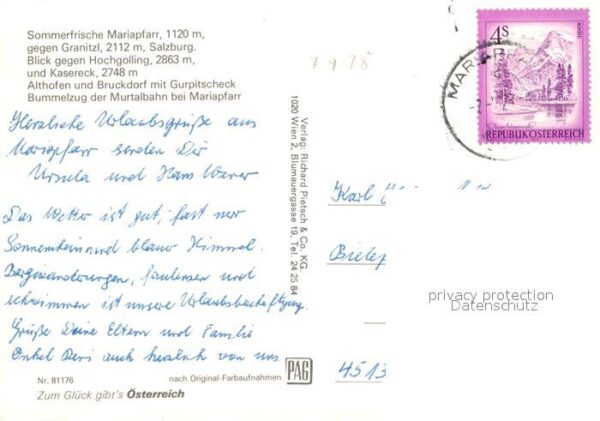 Sommerfrische Mariapfarr, 1120 m,
gegen Granitzl, 2112 m, Salzburg.
Blick gegen Hochgolling, 2863 m,
und Kasereck, 2748 m
Althofen und Bruckdorf mit Gurpitscheck
Bummelzug der Murtalbahn bei Mariapfarr
7 9.78
Herzliche Urlaubsgrüße aus
Mariapfarr senden Dir
Ursula und Hans Werner
Das Wetter ist gut, fast nur
Sonnenschein und blauer Himmel.
Bergwanderungen, faulenzen und
schwimmen ist unsere Urlaubsbeschäftigung.
Grüße Deine Eltern und Familie
Enkel auch herzlich von uns
Nr. 81176
nach Original-Farbaufnahmen
PAG
Zum Glück gibt's Österreich
Verlag: Richard Pietsch & Co. KG,
1020 Wien 2, Blumauergasse 19, Tel. 24 25 84
4S
REPUBLIK ÖSTERREICH
Karl
Bielef
4513
privacy protection
Datenschutz